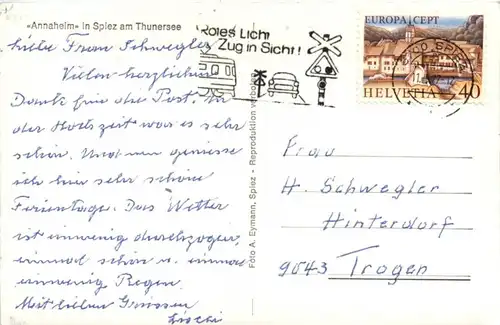 «Annaheim» in Spiez am Thunersee
Liebe Frau Schwegler
Vielen herzlichen
Dank für die Post. In
der Hochzeit war es sehr
schön. Und nun geniesse
ich hier sehr schöne
Ferientage. Das Wetter
ist einwenig durchzogen,
einmal schön u. einmal
einwenig Regen.
Mit lieben Grüssen
Foto A. Eymann, Spiez - Reproduktion verboten
Rotes Licht
Zug in Sicht!
EUROPA CEPT
SPIEZ
HELVETIA 40
Frau
H. Schwegler
Hinterdorf
9043 Trogen